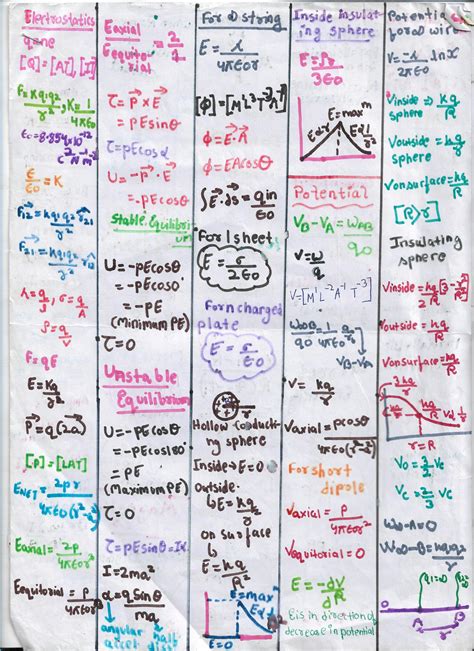 Electrostatics
[Q]=[AT], [I]
F=kq1q2/r², K=1/4πε0
ε0=8.854×10⁻¹²
C²N⁻¹m⁻²
ε/ε0=K
F12=kq1q2/r²
F21=kq1q2/r² r̂12
λ=q/l, σ=q/A
ρ=q/V
F=qE
E=kq/r²
P=q(2a)
[P]=[LAT]
ENET=2pr/4πε0(r²-l²)²
Eaxial=2p/4πε0r³
Equitorial=P/4πε0r³
Eaxial/Eequitorial=2/1
τ=P×E
=pEsinθ
τ=pEcosα
U=-P.E
=-pEcosθ
Stable Equilibrium
U=-pEcosθ
=-pEcos0°
=-pE
(Minimum PE)
τ=0
Unstable
Equilibrium
U=-pEcosθ
=-pEcos180°
=pE
(Maximum PE)
τ=0
τ=pEsinθ=Iα
I=2ma²
α=qEsinθ/ma
angular
accel
half
dist
For ∞ string
E=λ/4πε0r
[ϕ]=[M¹L³T⁻³A⁻¹]
ϕ=E.A
ϕ=EAcosθ
∫E.ds=qin/ε0
For 1 sheet
E=σ/2ε0
For n charged
plate
E=σ/ε0
Hollow conducting
sphere
Inside→E=0
Outside-
E=kq/r²
on surface
E=kq/R²
E=max^m
Inside insulating
sphere
E=ρr/3ε0
E=max^m
Eαr
Eα1/r²
Potential
VB-VA=WAB/q0
V=W/q
V=[M¹L²A⁻¹T⁻³]
VB-VA
V=kq/r
Vaxial=pcosθ/4πε0(r²-l²)
For short
dipole
Vaxial=P/4πε0r²
Vequitorial=0
E=-dV/dR
E is in direction of
decrease in potential
Potential
V=-λ/2πε0 lnx
Vinside=kq/R
Voutside=kq/r
sphere
Von surface=kq/R
[R>r]
Insulating
sphere
Voutside=kq/r
Von surface=kq/R
r=R
V0=3/2 Vc
Vc=2/3